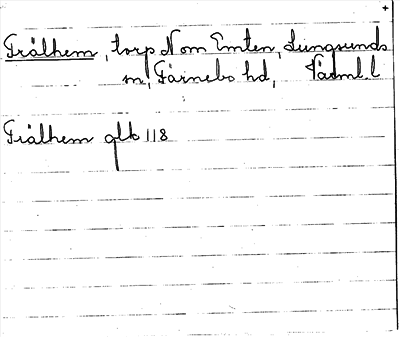 Trålhem, torp N om Emten, Lungsunds
sn, Färnebo hd, Värml. l
Trålhem glb 118